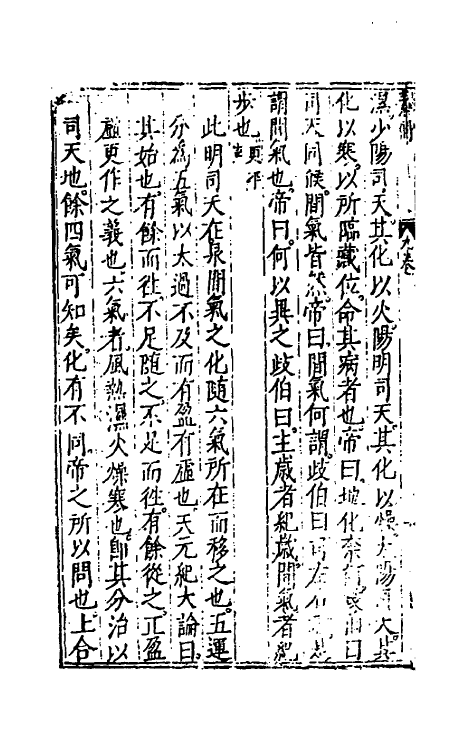 濕少陽司天其化以火陽明司天其化以燥太陽司天其
化以寒以所臨藏位命其病者也帝曰地化奈何岐伯曰
司天同候間氣皆然帝曰間氣何謂岐伯曰司左右者是
謂間氣也帝曰何以異之歧伯曰主歲者紀歲間氣者紀
步也
此明司天在泉間氣之化隨六氣所在而移之也五運
分為五氣以太過不及而有盈有虛也天元紀大論曰
其始也有餘而往不足隨之不足而往有餘從之正盈
虛更作之義也六氣者風熱濕火燥寒也即其分治以
司天地餘四氣可知矣化有不同帝之所以問也上合
九卷